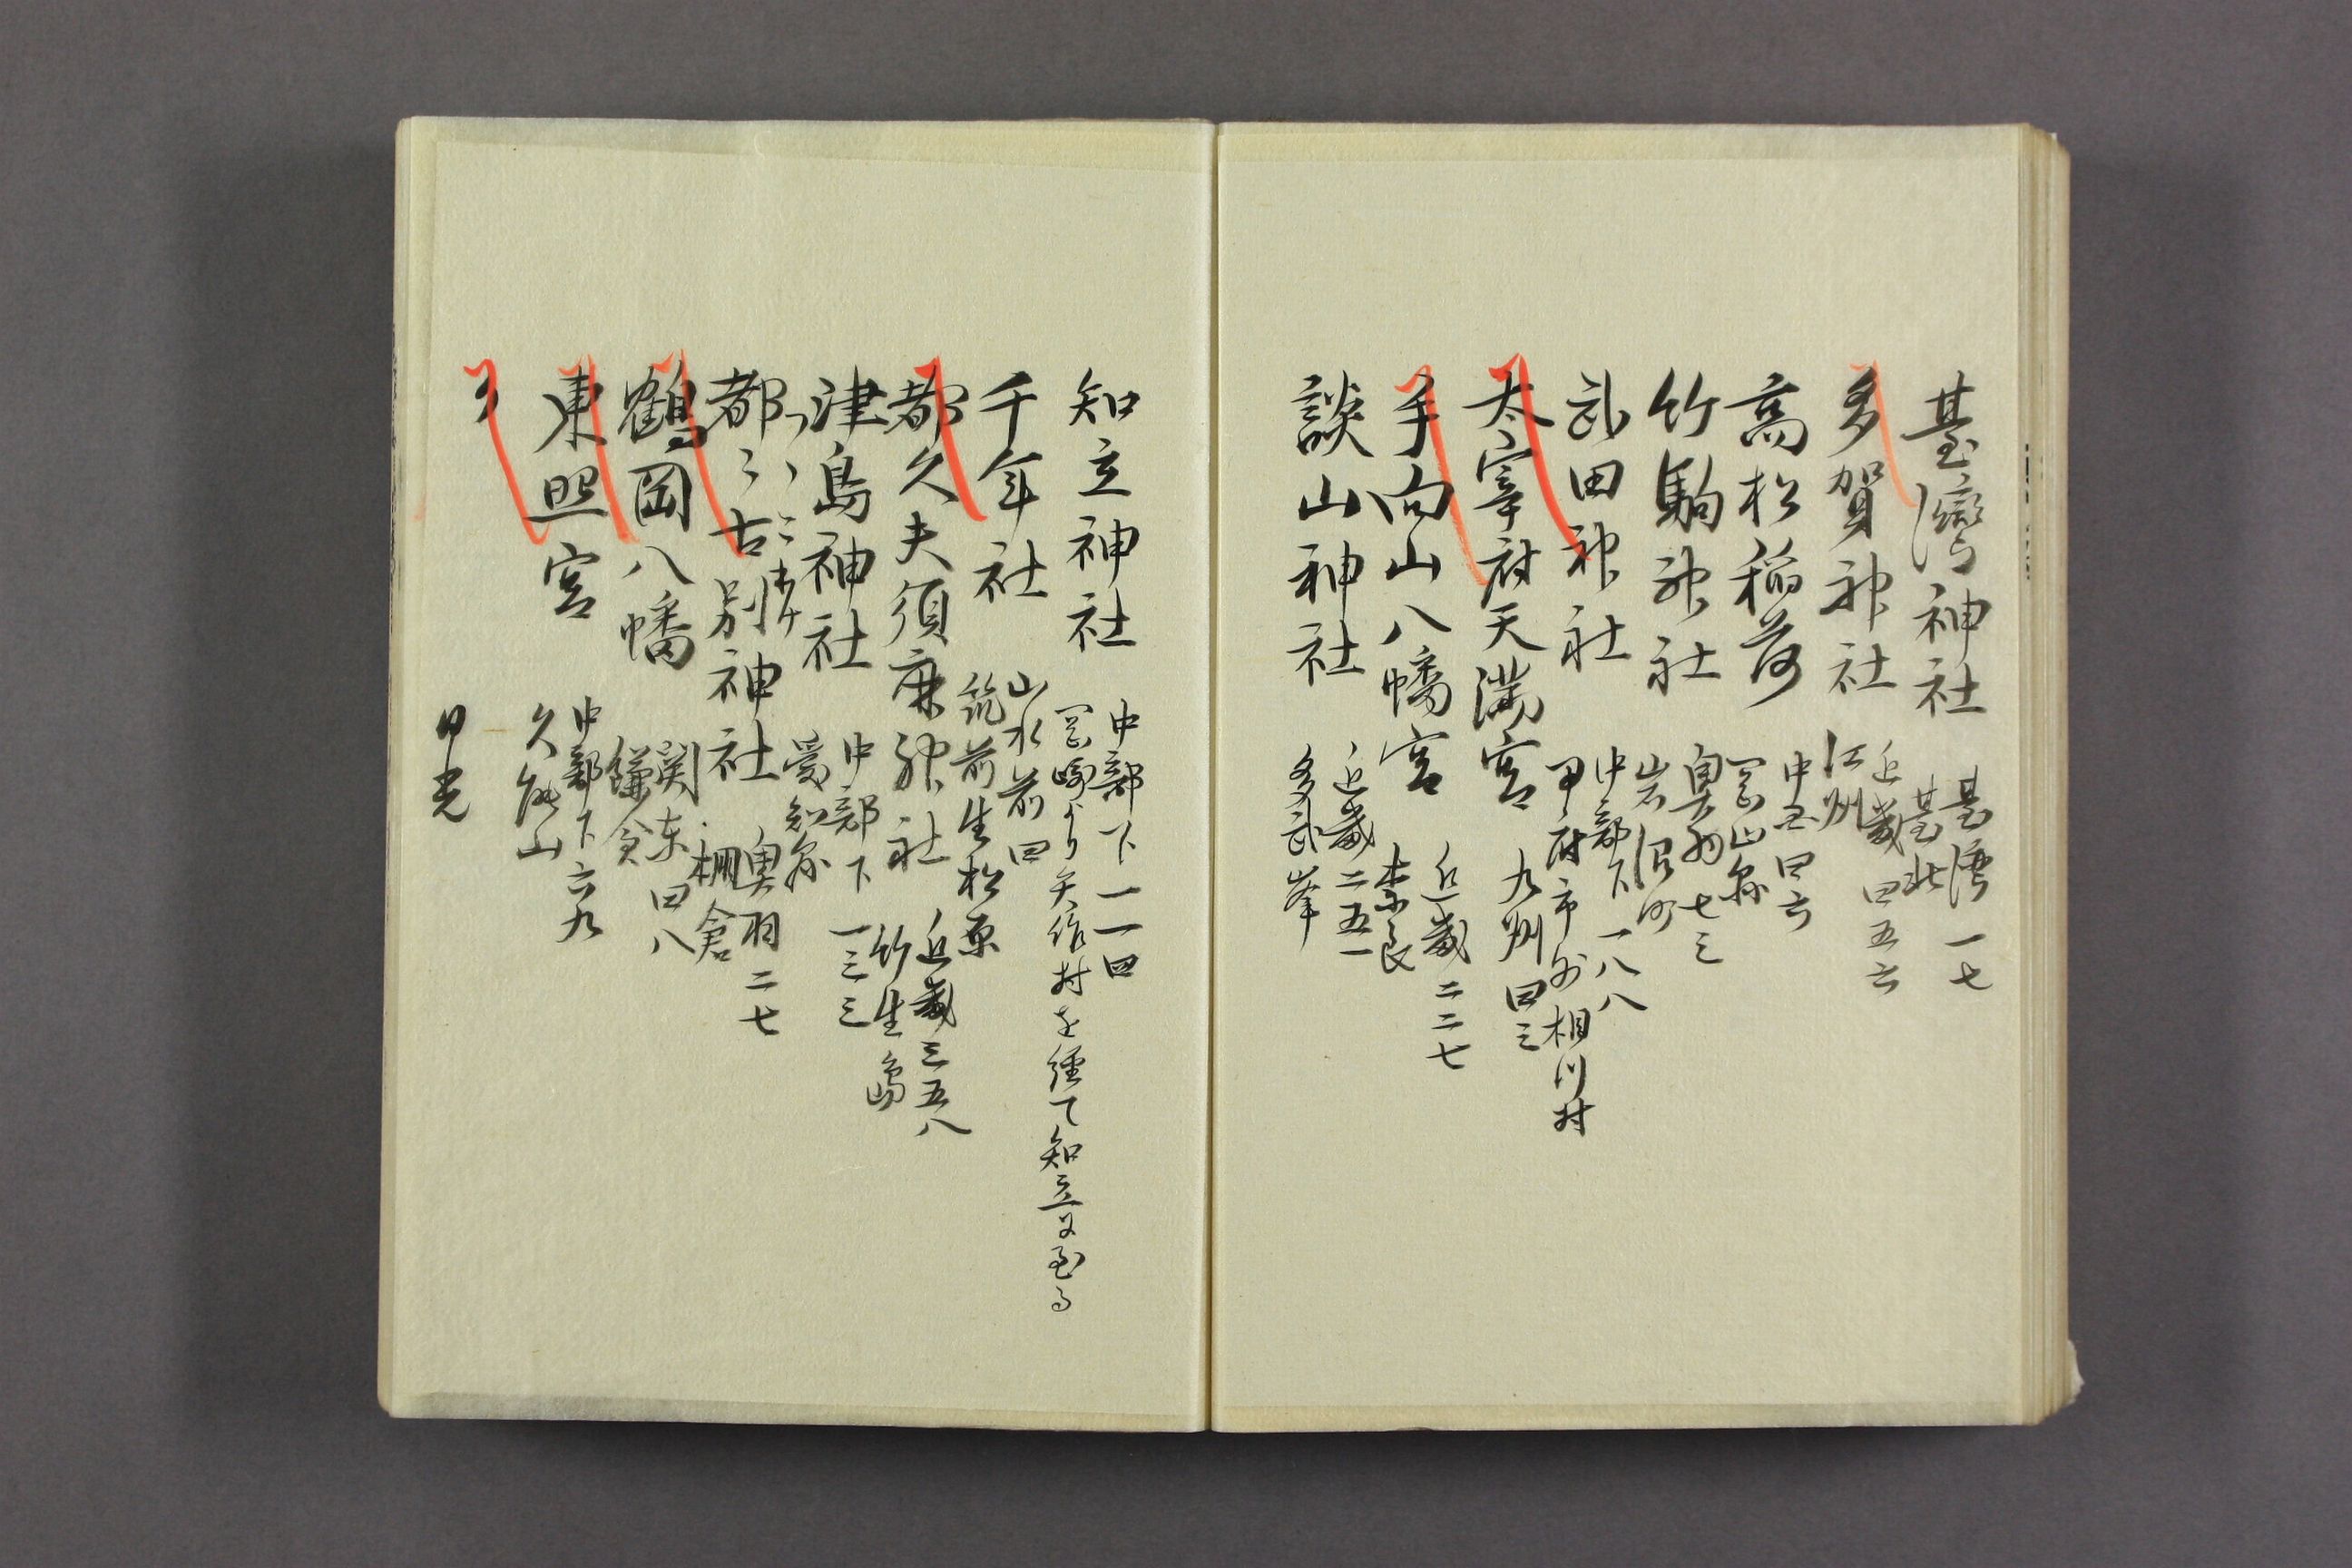 臺灣神社
臺灣 一七
臺北
多賀神社
近畿 四五六
江州
高松稲荷
中国 四六
岡山縣
竹駒神社
奥羽 七三
岩沼町
武田神社
中部下 一八八
甲府市外相川村
太宰府天満宮
九州 四三
手向山八幡宮
近畿 二二七
奈良
談山神社
近畿 二五一
多武峯
知立神社
中部下 一一四
岡崎より矢作村を経て知立に至る
千年社
山水前 四
筑前生松原
都久夫須麻神社
近畿 三五八
竹生島
津島神社
中部下 一三三
愛知縣
都々古別神社
奥羽 二七
棚倉
鶴岡八幡
関東 四八
鎌倉
東照宮
中部下 六九
久能山
〃
日光